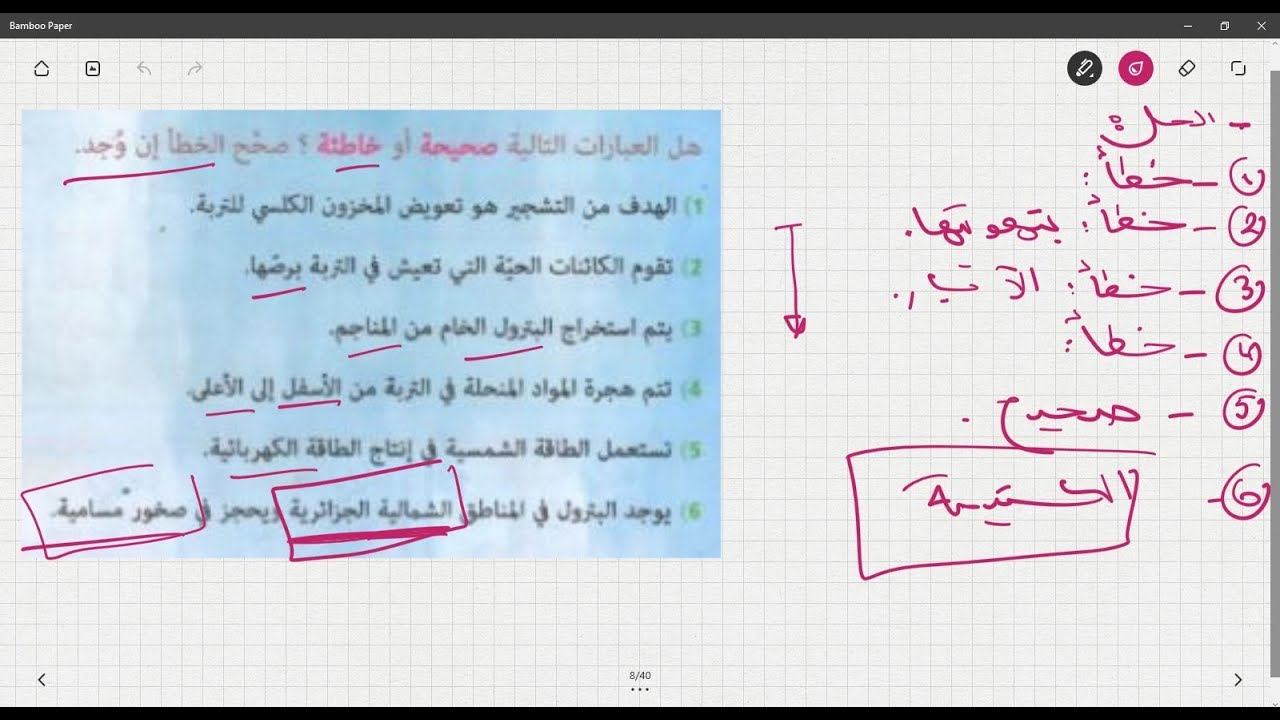 Bamboo Paper
هل العبارات التالية صحيحة أو خاطئة ؟ صحّح الخطأ إن وُجد.
1) الهدف من التشجير هو تعويض المخزون الكلسي للتربة.
2) تقوم الكائنات الحيّة التي تعيش في التربة برصّها.
3) يتم استخراج البترول الخام من المناجم.
4) تتم هجرة المواد المنحلة في التربة من الأسفل إلى الأعلى.
5) تستعمل الطاقة الشمسية في إنتاج الطاقة الكهربائية.
6) يوجد البترول في المناطق الشمالية الجزائرية ويحجز في صخور مسامية.
- الحل:
1 - خطأ:
2 - خطأ: بتهويتها.
3 - خطأ:
4 - خطأ:
5 - صحيح.
6 -
8/40